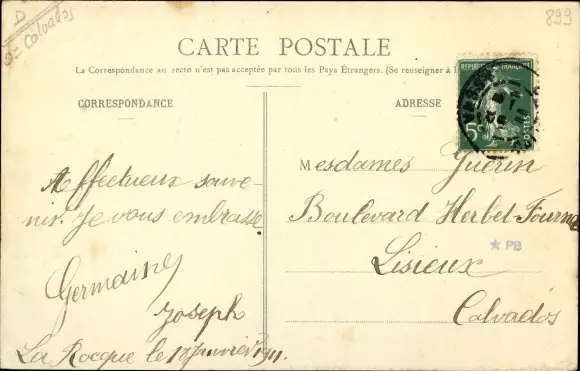 D
Calvados
893
CARTE POSTALE
La Correspondance au recto n'est pas acceptée par tous les Pays Étrangers. (Se renseigner à la
CORRESPONDANCE
ADRESSE
REPUBLIQUE
5c
POSTES
Affectueux souve-
nir. Je vous embrasse
Germaine
Joseph
La Rocque le 18 Janvier 1911.
Mesdames Guérin
Boulevard Herbet-Fourne
★ PB
Lisieux
Calvados